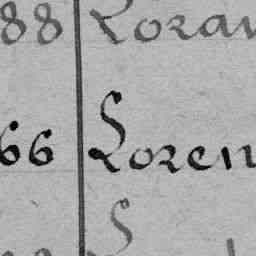 88 Loran
66 Loren